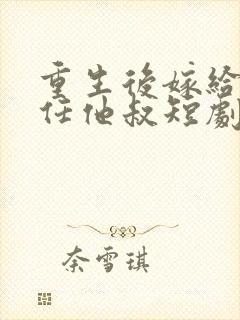 重生後嫁給
任他叔短劇
奈雪琪